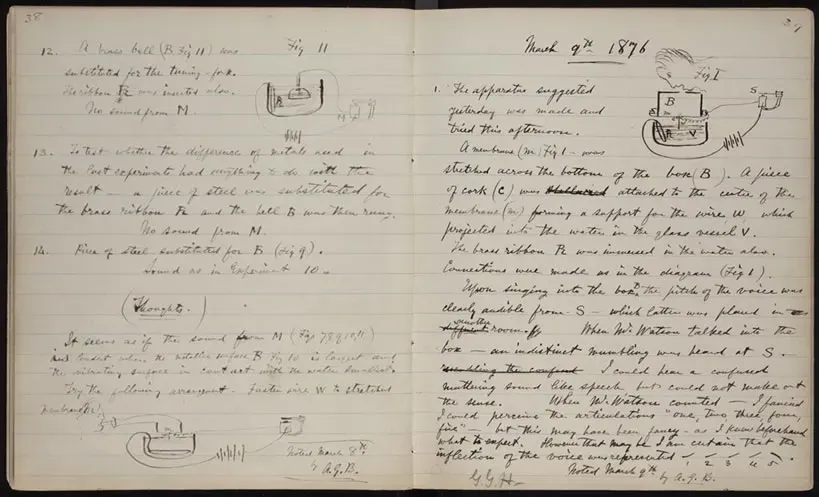 38
12. A brass bell (B. Fig 11) was
substituted for the tuning-fork.
The ribbon R was inserted also.
No sound from M.
Fig 11
13. To test whether the difference of metals used in
the last experiments had anything to do with the
result — a piece of steel was substituted for
the brass ribbon R and the bell B was then rung.
No sound from M.
14. Piece of steel substituted for B (Fig 9).
Sound as in Experiment 10.
(Thoughts.)
It seems as if the sound from M (Figs 7,8,9,10,11)
loudest when the vibratile surface B Fig 10 is largest and
the vibrating surface in contact with the water smallest.
Try the following arrangement. Fasten wire W to stretched
membrane
Noted March 8th
by A.G.B.
March 9th 1876
Fig 1
B
m
S
R
V
1. The apparatus suggested
yesterday was made and
tried this afternoon.
A membrane (m) Fig 1 — was
stretched across the bottom of the box (B). A piece
of cork (C) was attached to the centre of the
membrane (m) forming a support for the wire W which
projected into the water in the glass vessel V.
The brass ribbon R was immersed in the water also.
Connections were made as in the diagram (Fig 1).
Upon singing into the box the pitch of the voice was
clearly audible from S — which latter was placed in
another room. When Mr. Watson talked into the
box — an indistinct mumbling was heard at S.
I could hear a confused
muttering sound like speech but could not make out
the sense. When Mr. Watson counted — I fancied
I could perceive the articulations "one, two, three, four,
five" — but this may have been fancy — as I knew beforehand
what to expect. However that may be I am certain that the
inflection of the voice was represented
1 2 3 4 5
G.G.H. Noted March 9th by A.G.B.